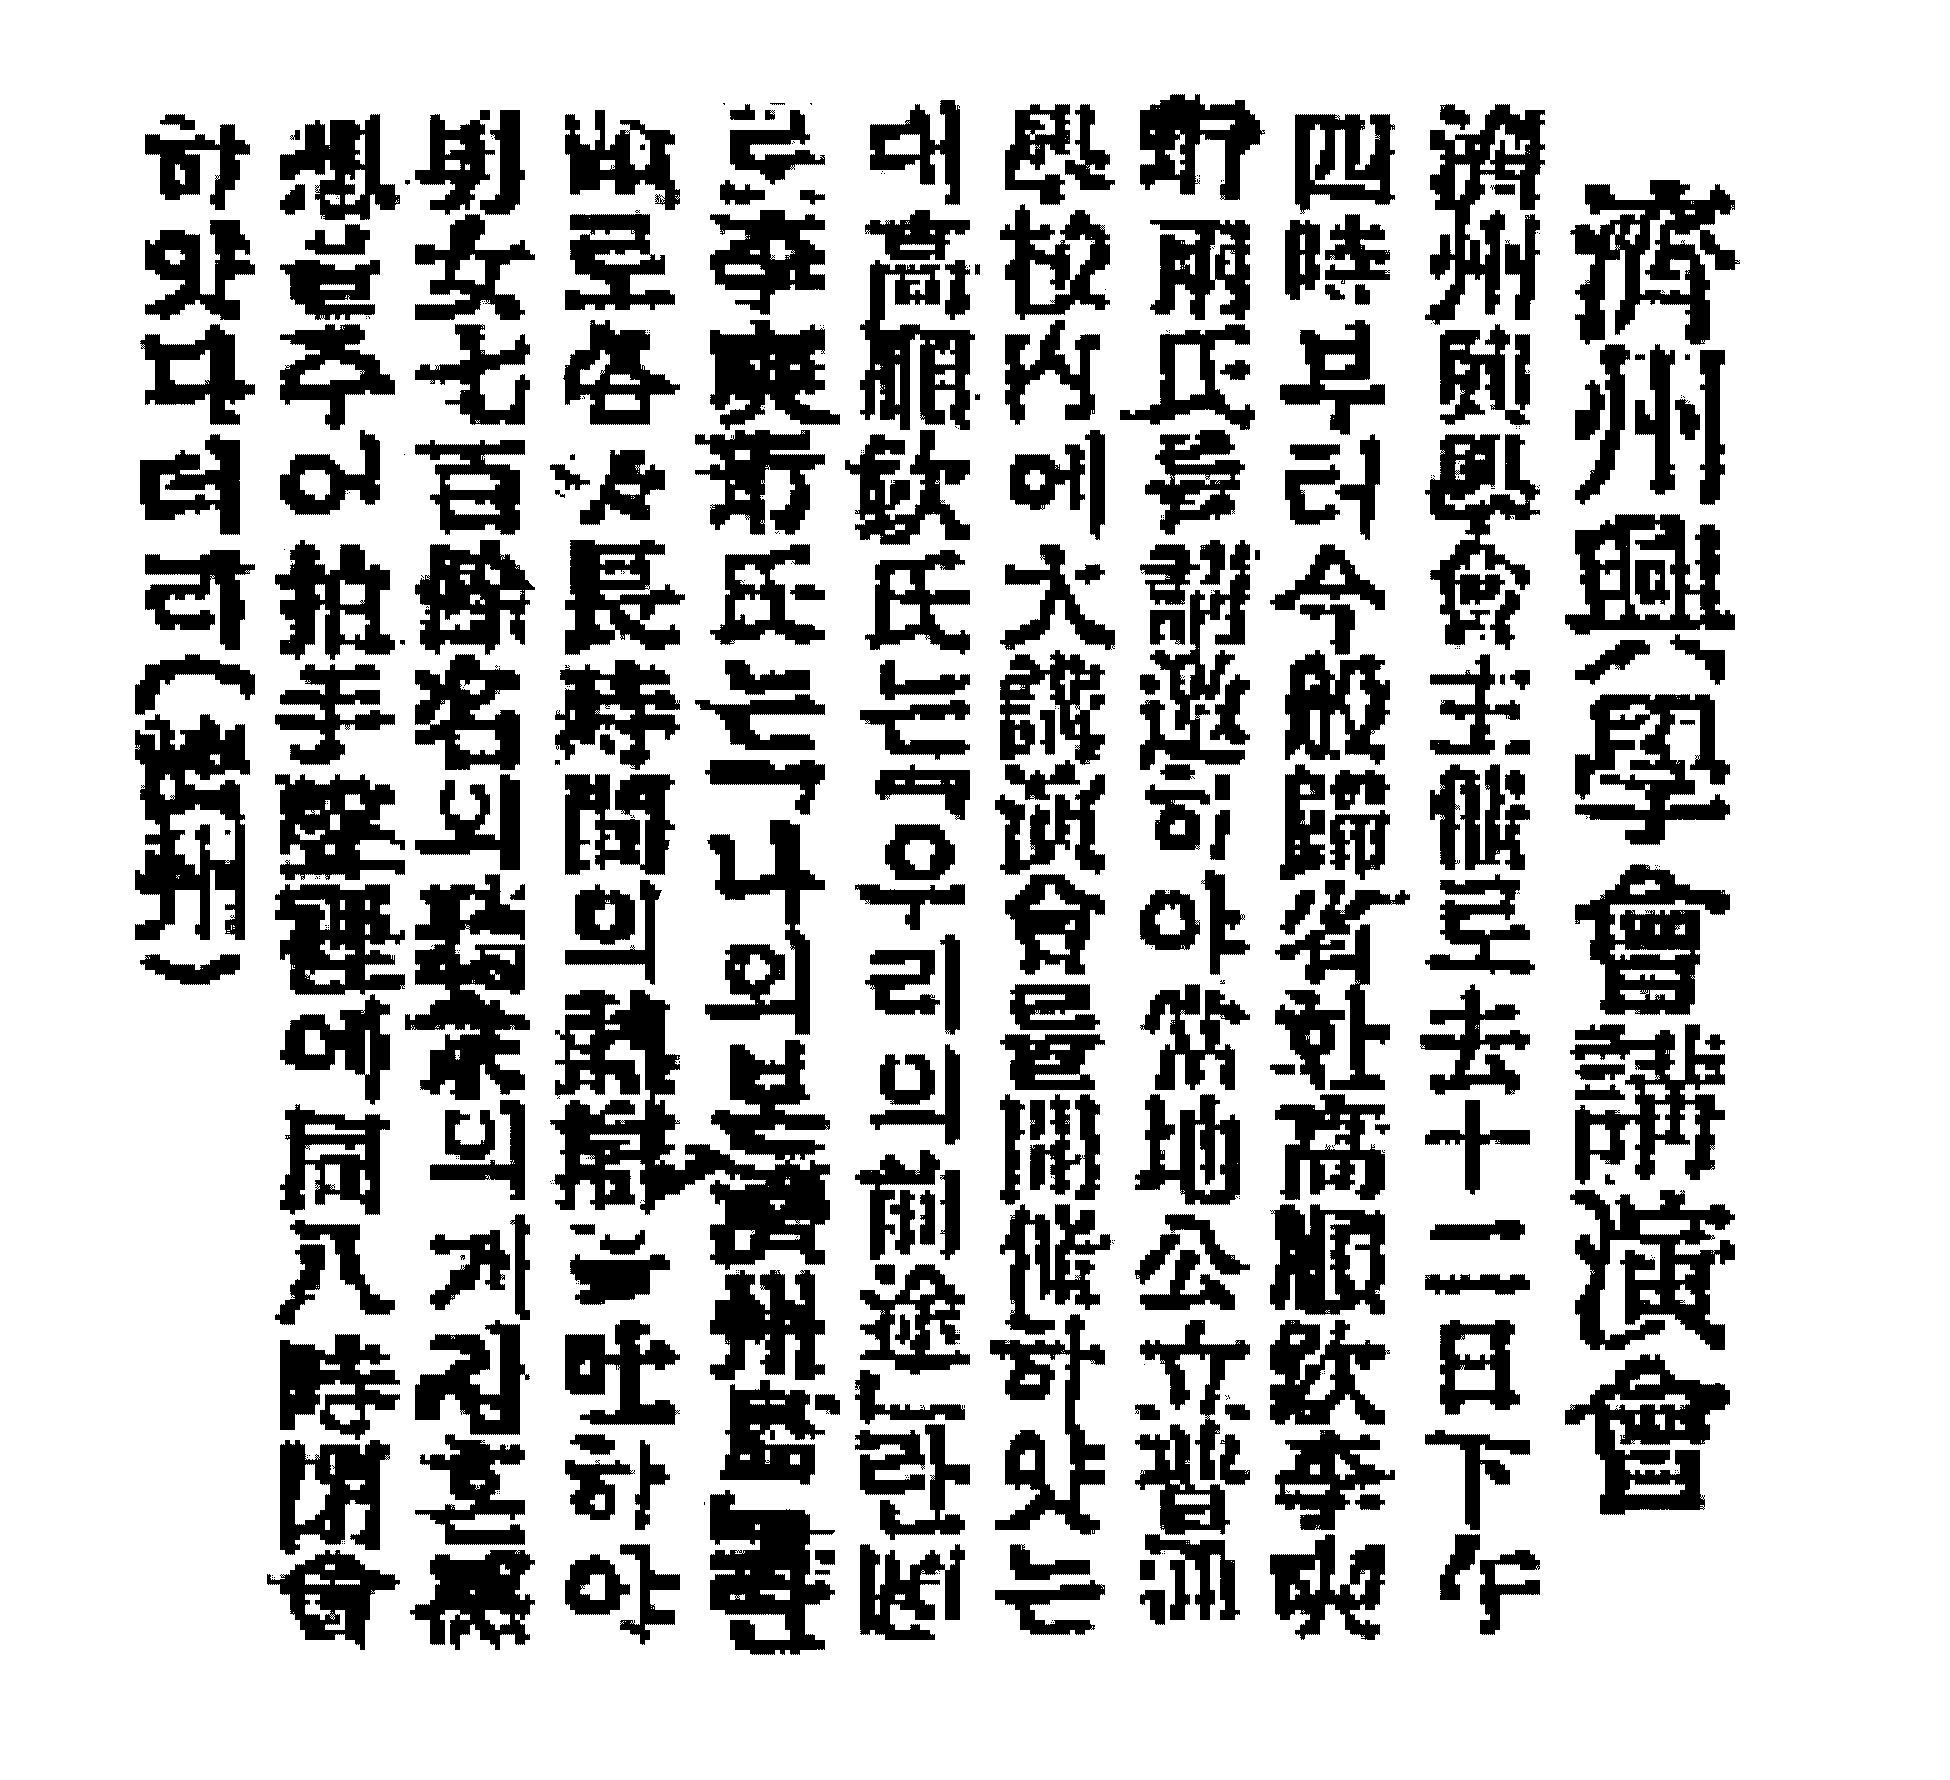 濟州興學會講演會
濟州興學會主催로去十二日下午
四時부터今般歸省한高順欽李爽
野兩氏를請邀하야當地公立普通
學校內에大講演會를開催하얏는
대高順欽氏는「우리의
李爽野氏는「나의본濟州
로各各長時間의는吐하야
男女七百餘名의게집흔
을주어拍手裡에同八時閉會
하얏다더라(濟州)